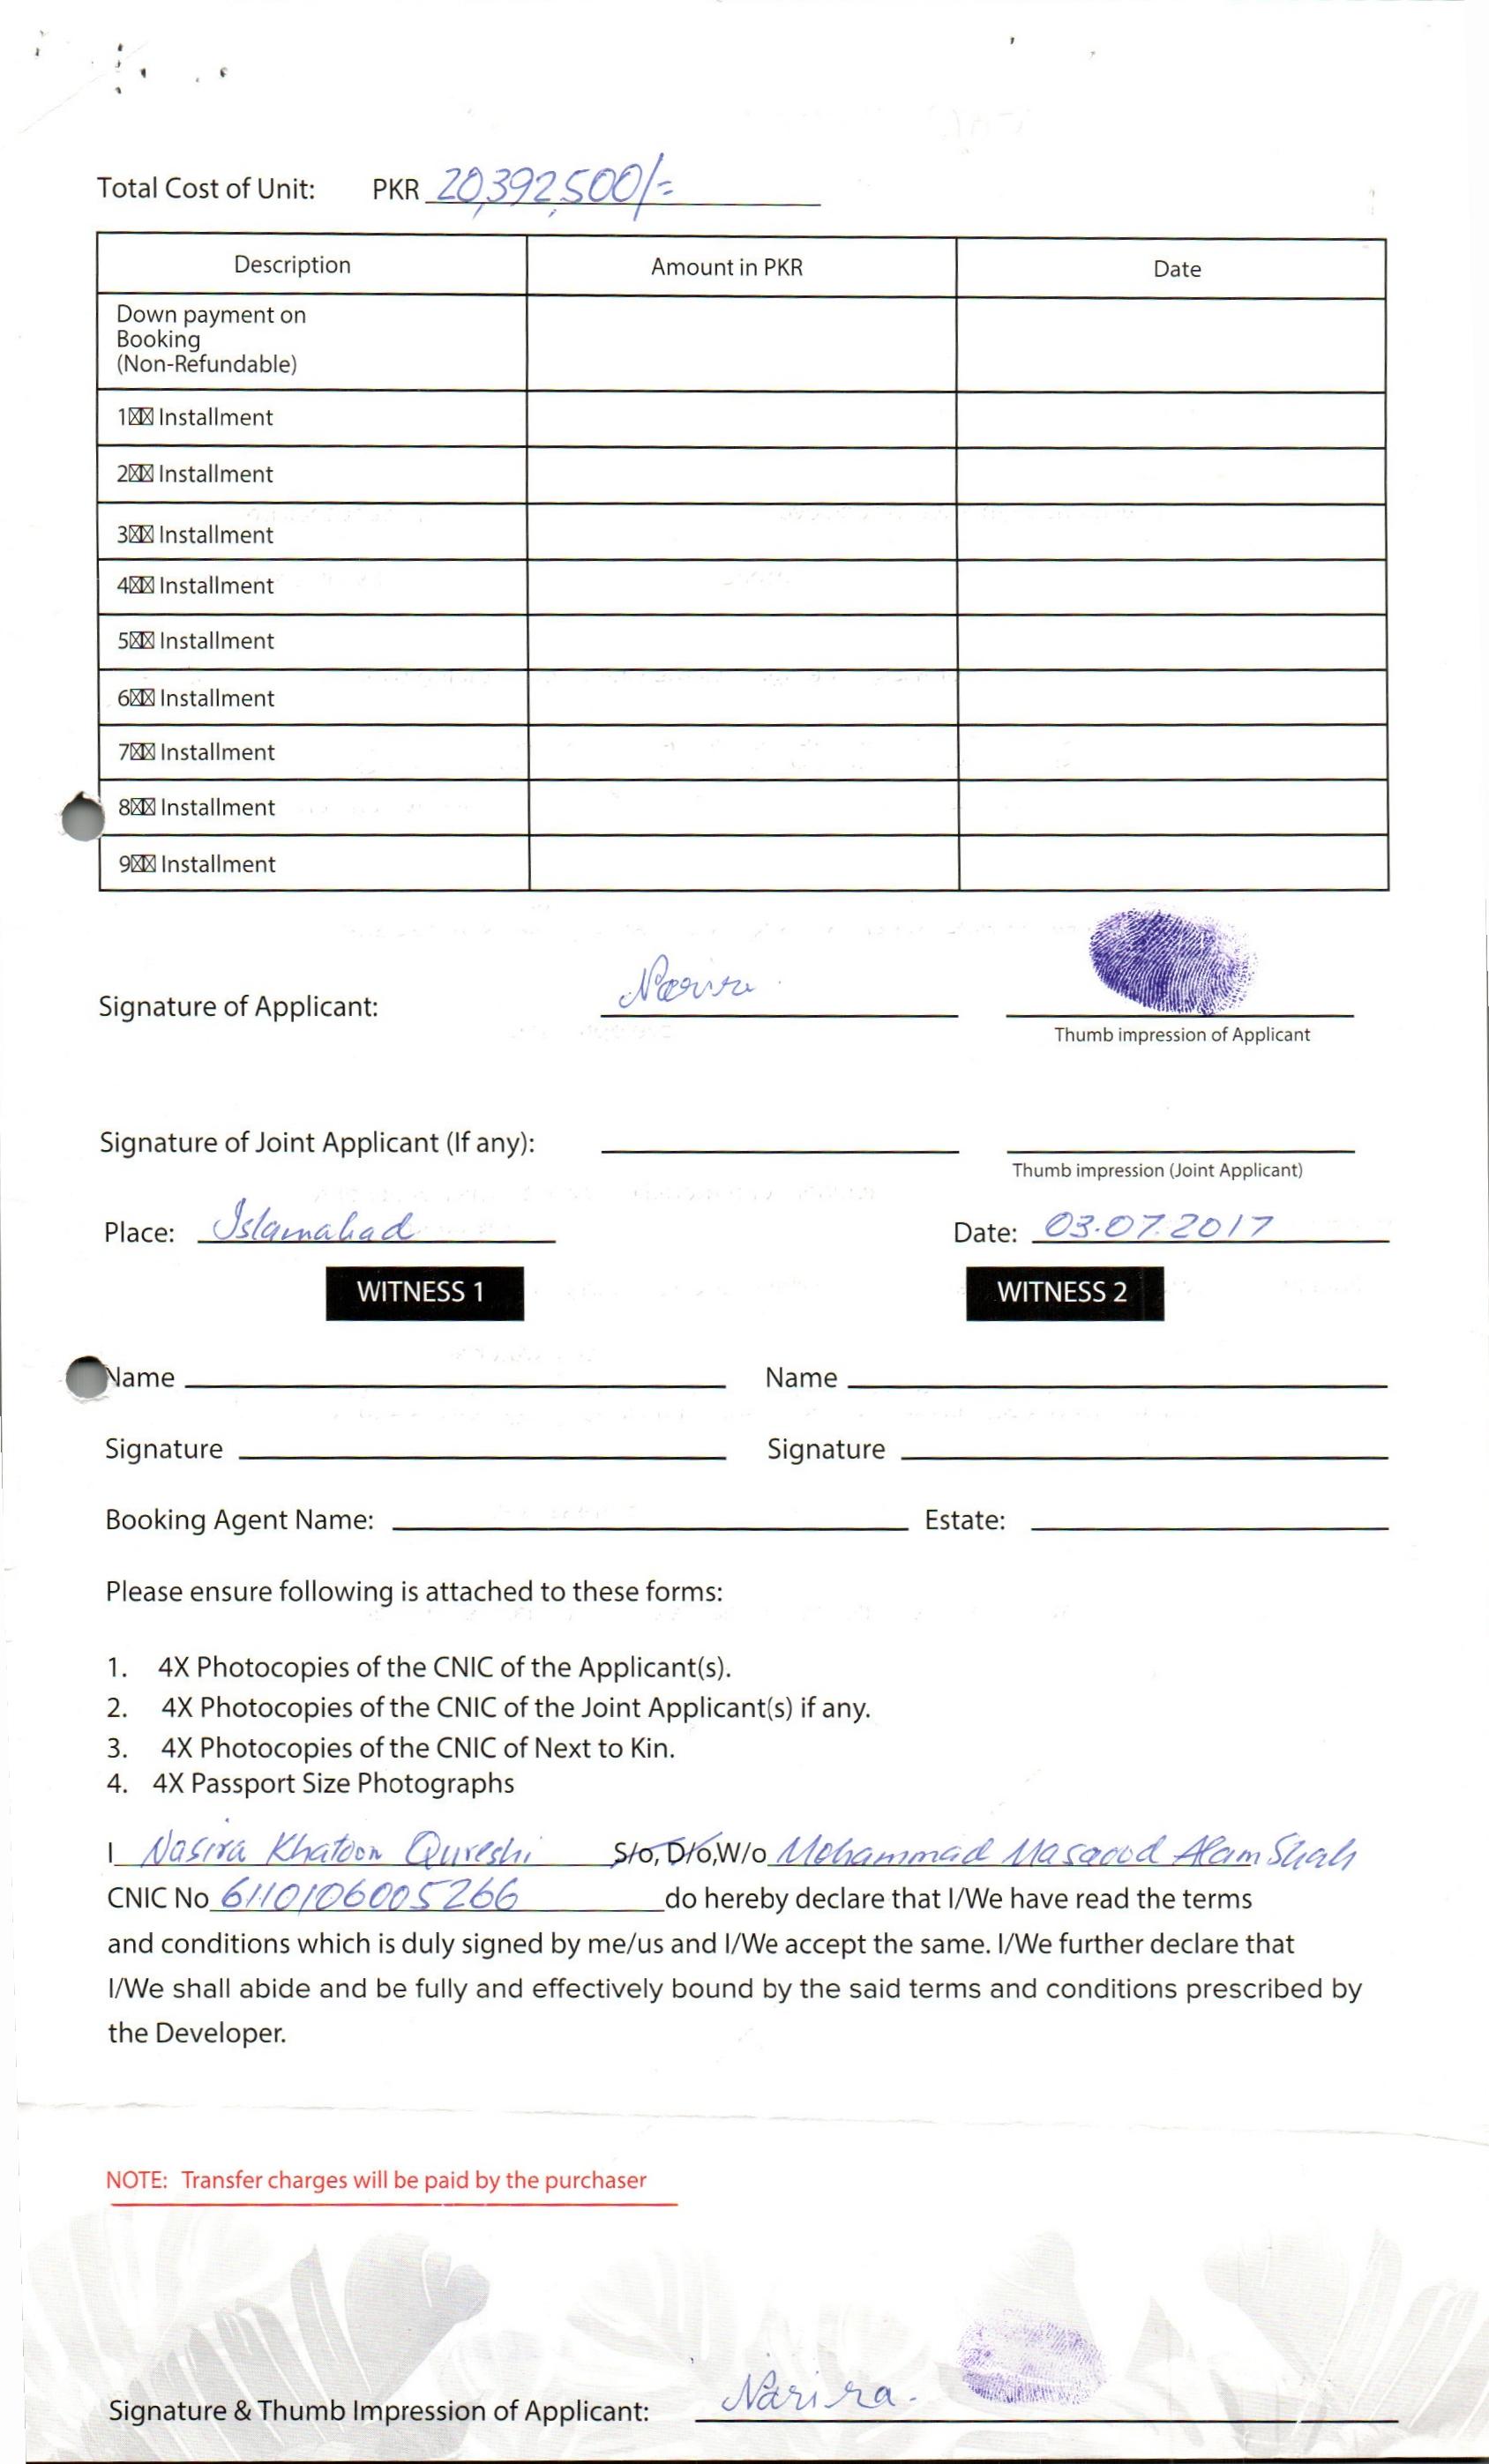 Total Cost of Unit: PKR 20,392,500/=
Description Amount in PKR Date
Down payment on
Booking
(Non-Refundable)
1☒☒ Installment
2☒☒ Installment
3☒☒ Installment
4☒☒ Installment
5☒☒ Installment
6☒☒ Installment
7☒☒ Installment
8☒☒ Installment
9☒☒ Installment
Signature of Applicant: Nasira
Thumb impression of Applicant
Signature of Joint Applicant (If any):
Thumb impression (Joint Applicant)
Place: Islamabad Date: 03.07.2017
WITNESS 1 WITNESS 2
Name Name
Signature Signature
Booking Agent Name: Estate:
Please ensure following is attached to these forms:
1. 4X Photocopies of the CNIC of the Applicant(s).
2. 4X Photocopies of the CNIC of the Joint Applicant(s) if any.
3. 4X Photocopies of the CNIC of Next to Kin.
4. 4X Passport Size Photographs
I Nasira Khatoon Qureshi S/o, D/o,W/o Mohammad Masaood Alam Shah
CNIC No 6110106005266 do hereby declare that I/We have read the terms
and conditions which is duly signed by me/us and I/We accept the same. I/We further declare that
I/We shall abide and be fully and effectively bound by the said terms and conditions prescribed by
the Developer.
NOTE: Transfer charges will be paid by the purchaser
Signature & Thumb Impression of Applicant: Nasira.